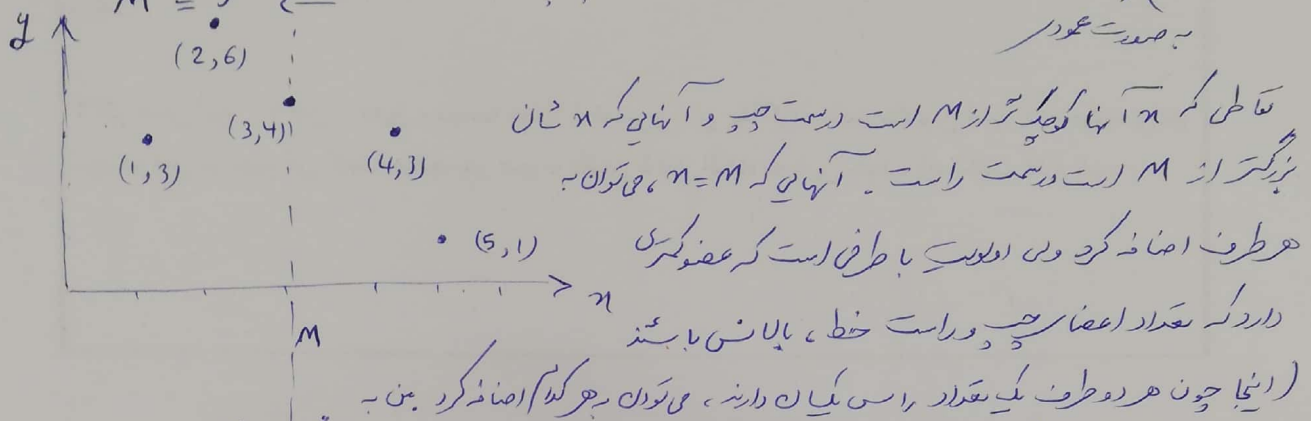 M = 3
به صورت عمودی
y
(2,6)
نقاطی که x آنها کوچک تر از M است در سمت چپ و آنهایی که x شان
(3,4)
(1,3)
(4,3)
بزرگتر از M است در سمت راست. آنهایی که x = M، می توان به
هر طرف اضافه کرد ولی اولویت با طرفی است که عضو کمتری
(5,1)
x
دارد که تعداد اعضای چپ و راست خط، بالانس باشند
M
(اینجا چون هر دو طرف یک تعداد راس یکسان دارند، می توان به هر کدام اضافه کرد. من به